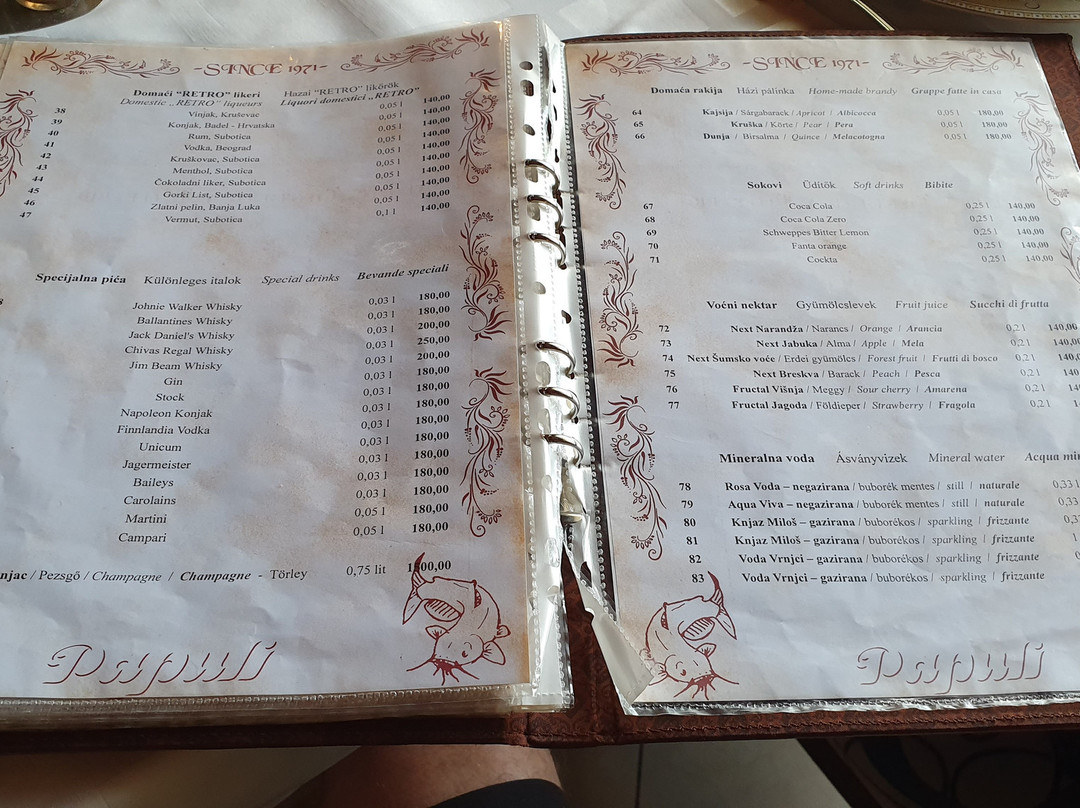 -SINCE 1971-
Domaći “RETRO” likeri Hazai “RETRO” likőrök
Domestic „RETRO” liqueurs Liquori domestici „RETRO”
38 Vinjak, Kruševac 0,05 l 140,00
39 Konjak, Badel - Hrvatska 0,05 l 140,00
40 Rum, Subotica 0,05 l 140,00
41 Vodka, Beograd 0,05 l 140,00
42 Kruškovac, Subotica 0,05 l 140,00
43 Menthol, Subotica 0,05 l 140,00
44 Čokoladni liker, Subotica 0,05 l 140,00
45 Gorki List, Subotica 0,05 l 140,00
46 Zlatni pelin, Banja Luka 0,05 l 140,00
47 Vermut, Subotica 0,1 l 140,00
Specijalna pića Különleges italok Special drinks Bevande speciali
Johnie Walker Whisky 0,03 l 180,00
Ballantines Whisky 0,03 l 180,00
Jack Daniel's Whisky 0,03 l 200,00
Chivas Regal Whisky 0,03 l 250,00
Jim Beam Whisky 0,03 l 200,00
Gin 0,03 l 180,00
Stock 0,03 l 180,00
Napoleon Konjak 0,03 l 180,00
Finnlandia Vodka 0,03 l 180,00
Unicum 0,03 l 180,00
Jagermeister 0,03 l 180,00
Baileys 0,03 l 180,00
Carolains 0,03 l 180,00
Martini 0,05 l 180,00
Campari 0,05 l 180,00
njac / Pezsgő / Champagne / Champagne - Törley 0,75 lit
Papuli
-SINCE 1971-
Domaća rakija Házi pálinka Home-made brandy Grappe fatte in casa
64 Kajsija / Sárgabarack / Apricot / Albicocca 0,05 l 180,00
65 Kruška / Körte / Pear / Pera 0,05 l 180,00
66 Dunja / Birsalma / Quince / Melacotogna 0,05 l 180,00
Sokovi Üdítők Soft drinks Bibite
67 Coca Cola 0,25 l 140,00
68 Coca Cola Zero 0,25 l 140,00
69 Schweppes Bitter Lemon 0,25 l 140,00
70 Fanta orange 0,25 l 140,00
71 Cockta 0,25 l 140,00
Voćni nektar Gyümölcslevek Fruit juice Succhi di frutta
72 Next Narandža / Narancs / Orange / Arancia 0,2 l 140,00
73 Next Jabuka / Alma / Apple / Mela 0,2 l 140,0
74 Next Šumsko voće / Erdei gyümölcs / Forest fruit / Frutti di bosco 0,2 l 140,0
75 Next Breskva / Barack / Peach / Pesca 0,2 l 140,
76 Fructal Višnja / Meggy / Sour cherry / Amarena 0,2 l 14
77 Fructal Jagoda / Földieper / Strawberry / Fragola 0,2 l 1
Mineralna voda Ásványvizek Mineral water Acqua min
78 Rosa Voda – negazirana / buborék mentes / still / naturale 0,33 l
79 Aqua Viva – negazirana / buborék mentes / still / naturale 0,33
80 Knjaz Miloš – gazirana / buborékos / sparkling / frizzante 0,3
81 Knjaz Miloš – gazirana / buborékos / sparkling / frizzante 1
82 Voda Vrnjci – gazirana / buborékos / sparkling / frizzante 0
83 Voda Vrnjci – gazirana / buborékos / sparkling / frizzante
Papuli